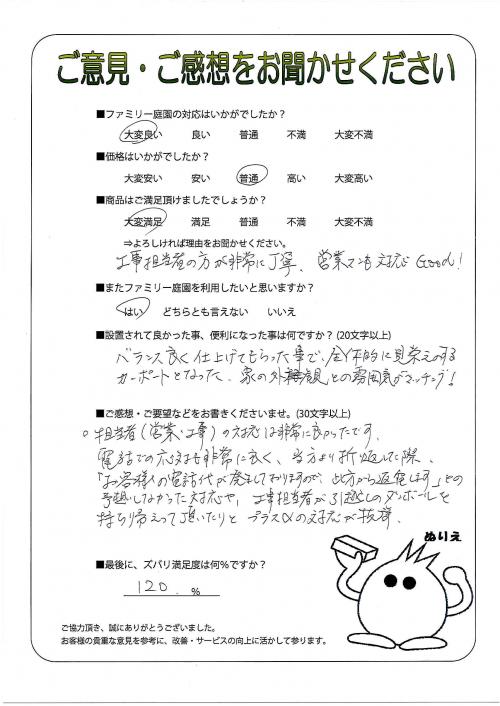 ご意見・ご感想をお聞かせください
■ファミリー庭園の対応はいかがでしたか？
大変良い 良い 普通 不満 大変不満
■価格はいかがでしたか？
大変安い 安い 普通 高い 大変高い
■商品はご満足頂けましたでしょうか？
大変満足 満足 普通 不満 大変不満
⇒よろしければ理由をお聞かせください。
工事担当者の方が非常に丁寧、営業マンも対応Good!
■またファミリー庭園を利用したいと思いますか？
はい どちらとも言えない いいえ
■設置されて良かった事、便利になった事は何ですか？(20文字以上)
バランス良く仕上げてもらった事で、全体的に見栄えのする
カーポートとなった、家の外観との雰囲気がマッチング!
■ご感想・ご要望などをお書きくださいませ。(30文字以上)
○担当者(営業・工事)の対応は非常に良かったです。
電話での応対も非常に良く、当方より折返した際、
「お客様の電話代が発生しておりますので、此方から返信します」との
予想しなかった対応や、工事担当者が引越しのダンボールを
持ち帰えって頂いたりとプラスαの対応が抜群。
ぬりえ
■最後に、ズバリ満足度は何％ですか？
120.％
ご協力頂き、誠にありがとうございました。
お客様の貴重な意見を参考に、改善・サービスの向上に活かして参ります。